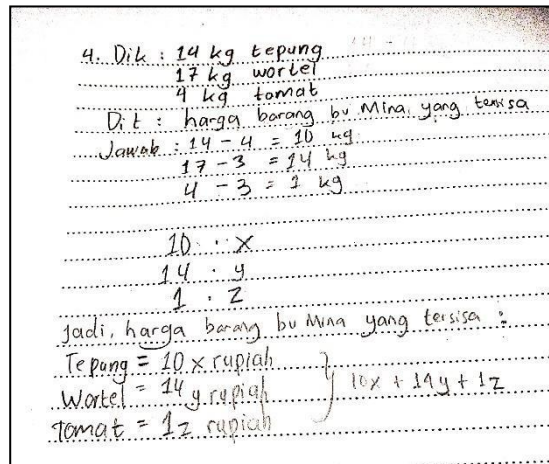 4. Dik : 14 kg tepung
17 kg wortel
4 kg tomat
Dit : harga barang bu Mina yang tersisa
Jawab : 14 - 4 = 10 kg
17 - 3 = 14 kg
4 - 3 = 1 kg
10 . x
14 . y
1 . z
Jadi, harga barang bu Mina yang tersisa :
Tepung = 10 x rupiah
Wortel = 14 y rupiah
Tomat = 1z rupiah
10x + 14y + 1z